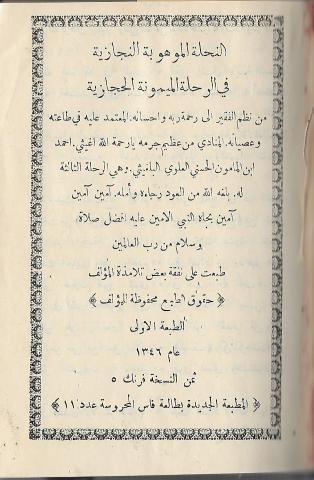 النحلة الموهوبة النجازية
في الرحلة الميمونة الحجازية
من نظم الفقير الى رحمة ربه واحسانه. المعتمد عليه في طاعته
وعصيانه. المنادي من عظيم جرمه يارحمة الله اغيثي. احمد
ابن المامون الحسني العلوي البلغيثي. وهي الرحلة الثالثة
له. بلغه الله من العود رجاءه وأمله. آمين آمين
آمين بجاه النبي الامين عليه افضل صلاة.
وسلام من رب العالمين
طبعت على نفقة بعض تلامذة المؤلف
﴿ حقوق الطبع محفوظة للمؤلف ﴾
الطبعة الاولى
عام ١٣٤٦
ثمن النسخة فرنك ٥
﴿ المطبعة الجديدة بطالعة فاس المحروسة عدد ١١ ﴾